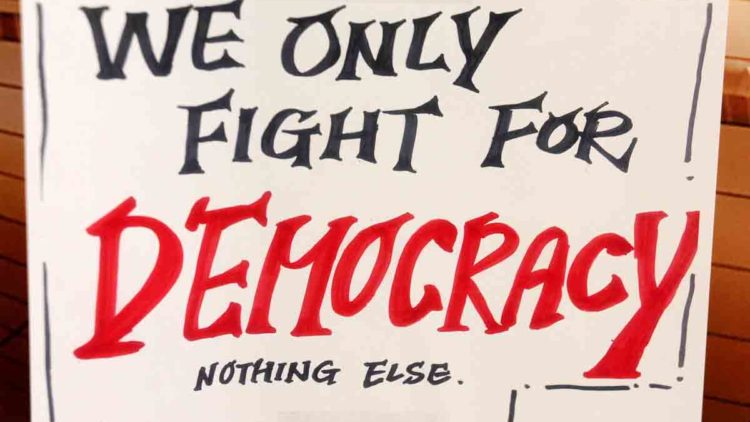 WE ONLY
FIGHT FOR
DEMOCRACY
NOTHING ELSE.